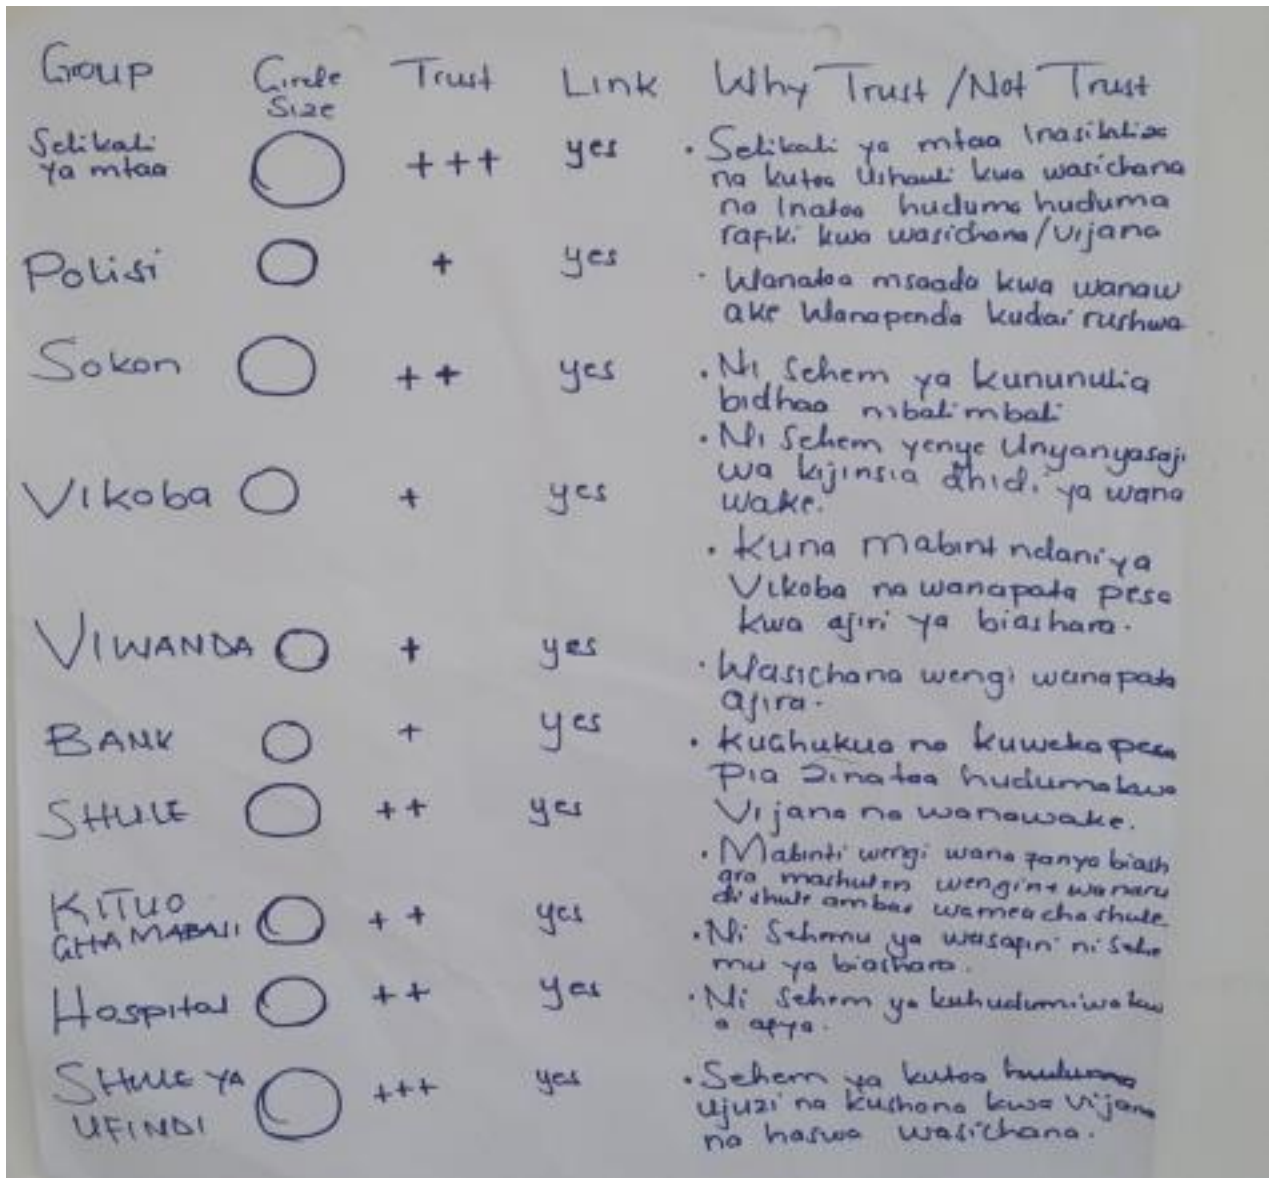 Group Circle Size Trust Link Why Trust / Not Trust
Selikali ya mtaa +++ yes
• Selikali ya mtaa Inasikiliza
na kutoa Ushauli kwa wasichana
na Inatoa huduma huduma
rafiki kwa wasichana/vijana
Polisi + yes
• Wanatoa msaada kwa wanaw
ake Wanapenda kudai rushwa
Sokon ++ yes
• Ni Sehem ya kununulia
bidhaa mbalimbali
• Ni Sehem yenye Unyanyasaji
wa kijinsia dhidi ya wana
wake.
Vikoba + yes
• Kuna mabint ndani ya
Vikoba na wanapata pesa
kwa ajiri ya biashara.
VIWANDA + yes
• Wasichana wengi wanapata
ajira.
BANK + yes
• Kuchukua na kuweka pesa
pia Zinatoa huduma kwa
Vijana na wanawake.
SHULE ++ yes
• Mabinti wengi wana fanya biash
ara mashulen wengine wanaru
di shule ambao wameacha shule
KITUO CHA MABASI ++ yes
• Ni Sehemu ya wasafiri ni sehe
mu ya biashara.
Hospital ++ yes
• Ni Sehem ya kuhudumiwa kw
a afya.
SHULE YA UFINDI +++ yes
• Sehem ya kutoa
ujuzi na kushona kwa vijana
na haswa wasichana.